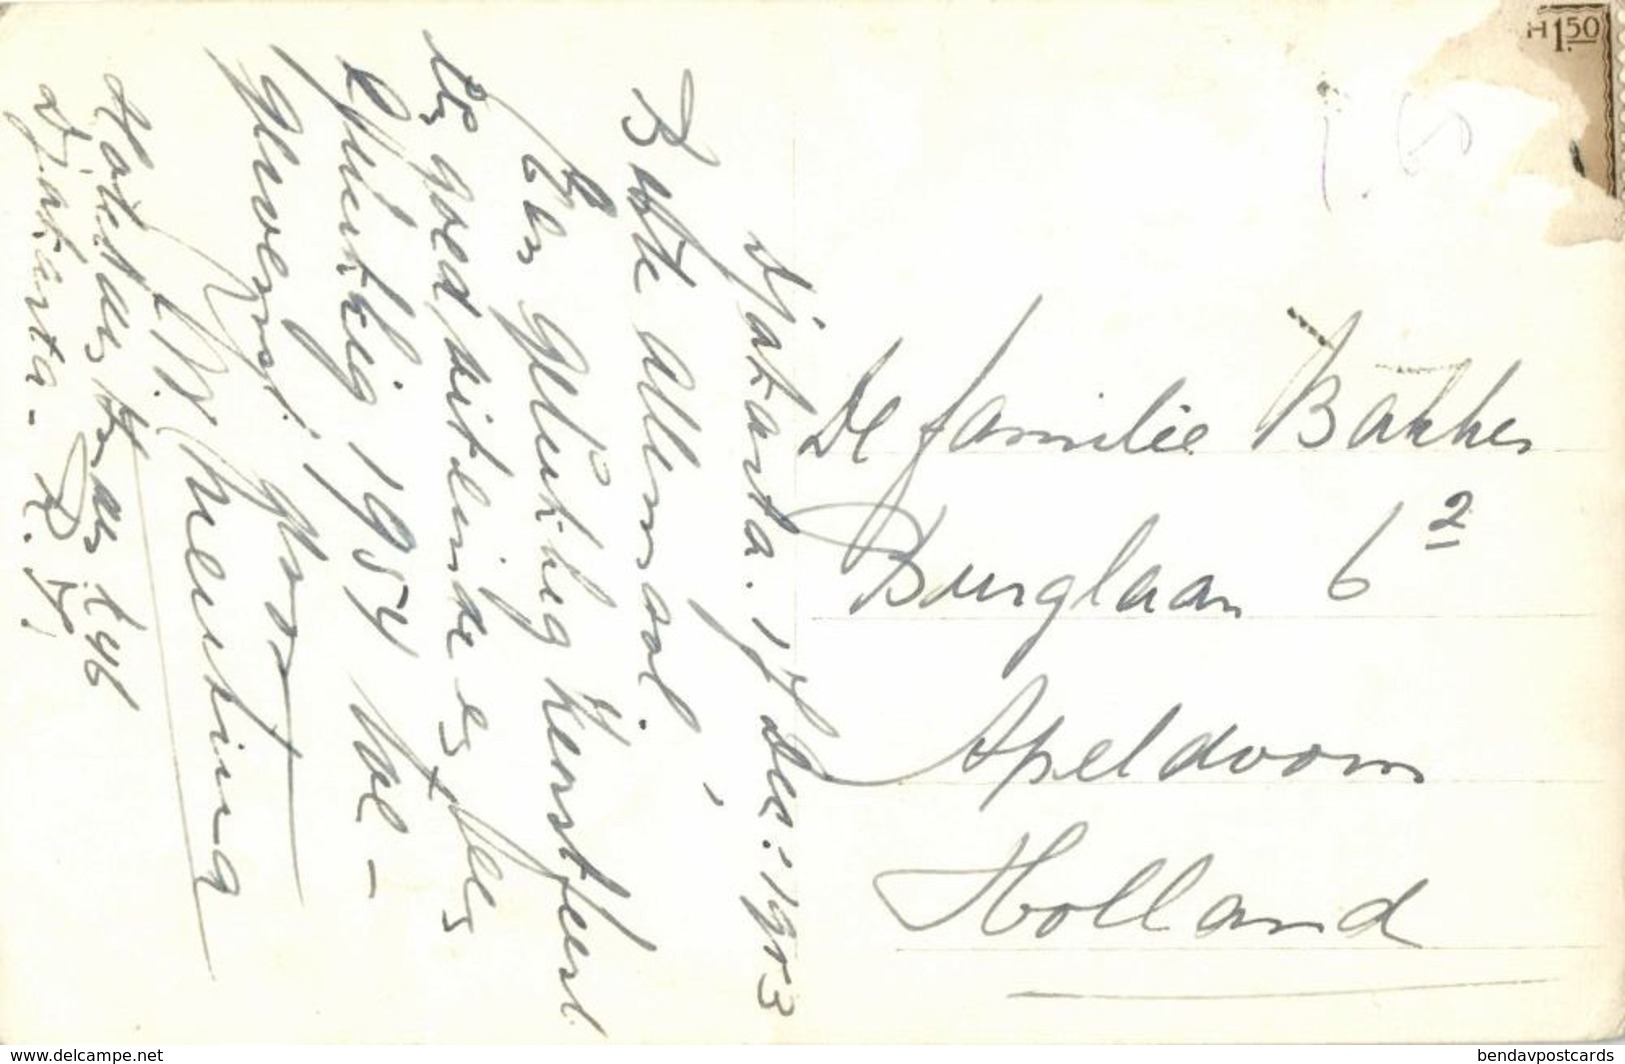 Djakarta. 17 Dec: 1953
Beste Allemaal,
Een gelukkig Kerstfeest
en goed uiteinde en
gelukkig 1954 toe-
gewenst. groet
W. Meeusing
Hotel des Indes 146
Djakarta - R.I.
H 1.50
De familie Bakker
Burglaan 6 2
Apeldoorn
Holland
www.delcampe.net
bendavpostcards